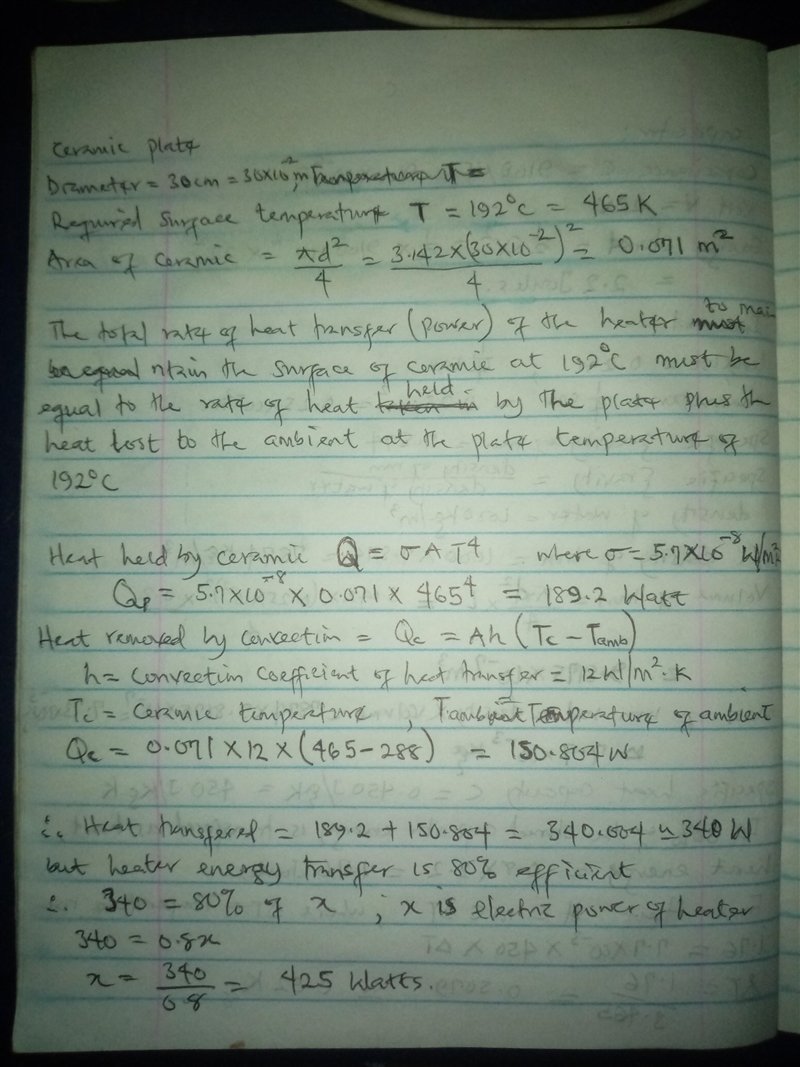 Ceramic plate
Diameter = 30cm = 30x10⁻², m T=
Required surface temperature T = 192°C = 465K
Area of ceramic = πd²/4 = 3.142x(30x10⁻²)²/4 = 0.071 m²
The total rate of heat transfer (power) of the heater must to mai
be equal ntain the surface of ceramic at 192°C must be
equal to the rate of heat taken in held by the plate plus th
heat lost to the ambient at the plate temperature of
192°C
Heat held by ceramic Q = σAT⁴ where σ = 5.7x10⁻⁸ W/m²
Qp = 5.7x10⁻⁸ x 0.071 x 465⁴ = 189.2 Watt
Heat removed by convection = Qc = Ah (Tc - Tamb)
h = Convection coefficient of heat transfer = 12W/m².K
Tc = Ceramic temperature, Tambient Temperature of ambient
Qc = 0.071 x 12 x (465-288) = 150.804W
∴ Heat transfered = 189.2 + 150.804 = 340.004 ≃ 340 W
but heater energy transfer is 80% efficient
∴ 340 = 80% of x ; x is electric power of heater
340 = 0.8x
x = 340/0.8 = 425 Watts.